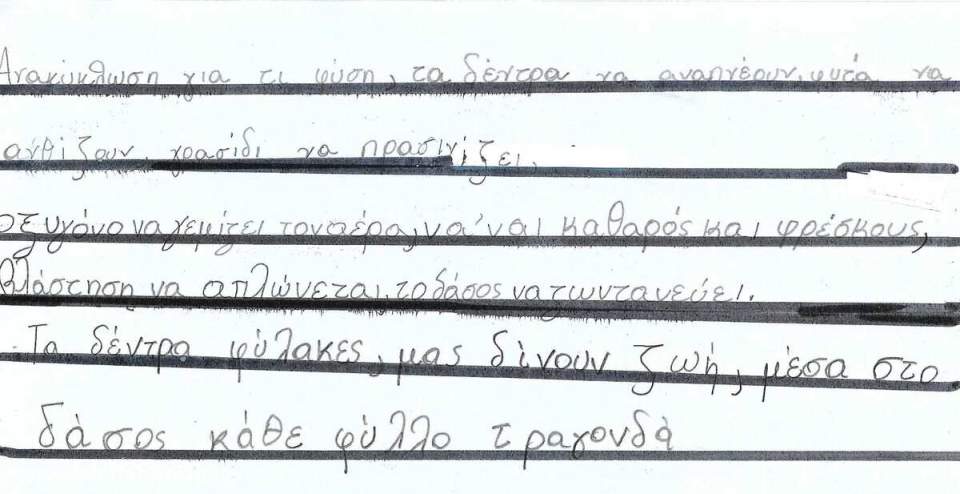 Ανακύκλωση για τι φύση, τα δέντρα να αναπνέουν, φυτά να
ανθίζουν, γρασίδι να πρασινίζει.
οξυγόνο να γεμίζει τον αέρα, να 'ναι καθαρός και φρέσκους,
βλάστηση να απλώνεται, το δάσος να ζωντανεύει.
Τα δέντρα φύλακες, μας δίνουν ζωή, μέσα στο
δάσος κάθε φύλλο τραγουδά